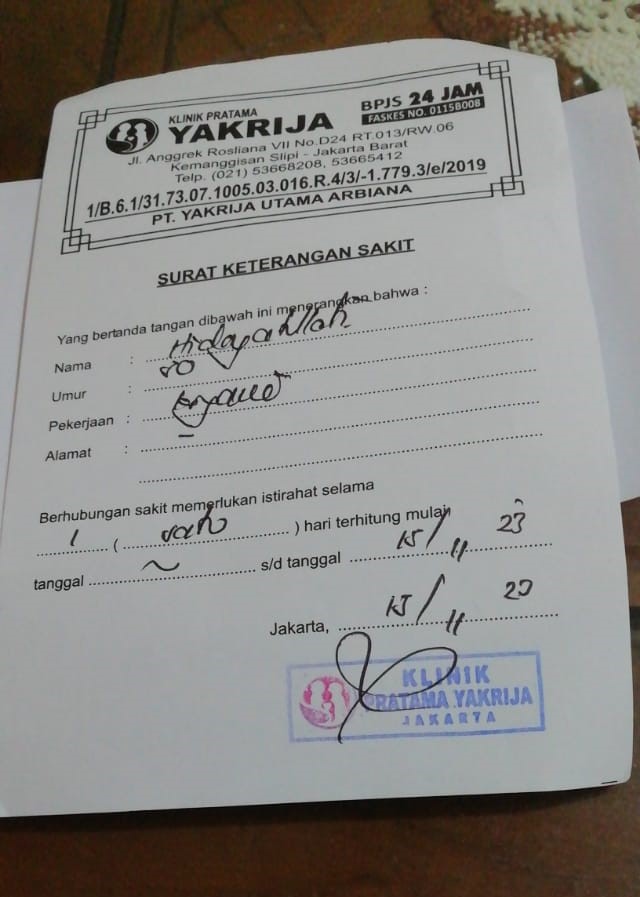 KLINIK PRATAMA
YAKRIJA
BPJS 24 JAM
FASKES NO. 0115B008
Jl. Anggrek Rosliana VII No.D24 RT.013/RW.06
Kemanggisan Slipi - Jakarta Barat
Telp. (021) 53668208, 53665412
1/B.6.1/31.73.07.1005.03.016.R.4/3/-1.779.3/e/2019
PT. YAKRIJA UTAMA ARBIANA
SURAT KETERANGAN SAKIT
Yang bertanda tangan dibawah ini menerangkan bahwa :
Nama : Hidayatullah
Umur :
Pekerjaan :
Alamat : -
Berhubungan sakit memerlukan istirahat selama
1 ( satu ) hari terhitung mulai
tanggal ~ s/d tanggal 15/11 23
Jakarta, 15/11 23
KLINIK
PRATAMA YAKRIJA
JAKARTA